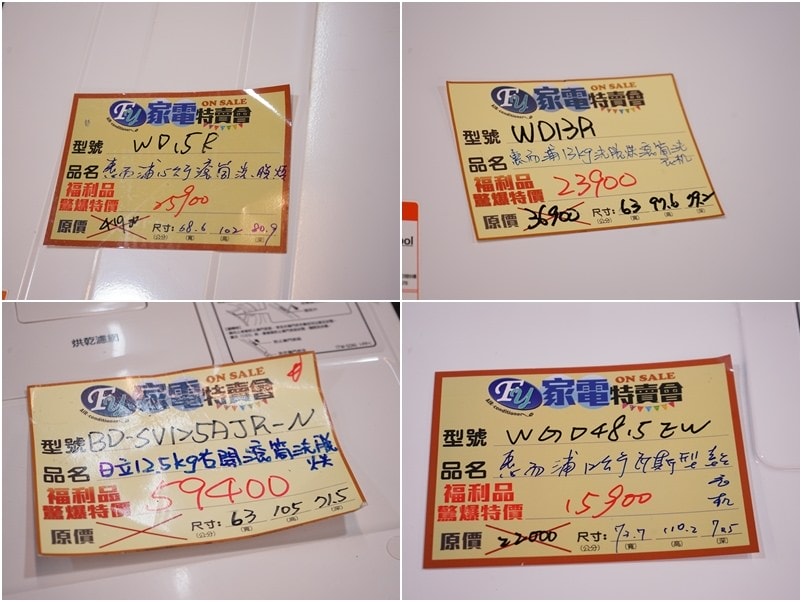 FU 家電特賣會 ON SALE
Air conditioner
型號 WD15R
品名 惠而浦15公斤滾筒洗脫烘
福利品
驚爆特價 25900
原價
尺寸: 68.6 102 80.9
(公分) (寬) (高) (深)
FU 家電特賣會 ON SALE
Air conditioner
型號 WD13R
品名 惠而浦13kg洗脫烘滾筒洗衣机
福利品
驚爆特價 23900
原價 36900 尺寸: 63 97.6
(公分) (寬) (高) (深)
烘乾濾網
FU 家電特賣會 ON SALE
Air conditioner
型號 BD-SV125AJR-N
品名 日立12.5kg右開滾筒洗脫烘
福利品
驚爆特價 59400
原價 尺寸: 63 105 71.5
(公分) (寬) (高) (深)
FU 家電特賣會 ON SALE
Air conditioner
型號
品名 惠而浦12公斤瓦斯型乾衣机
福利品
驚爆特價 15900
原價 22000 尺寸: 73.7 110.2
(公分) (寬) (高) (深)